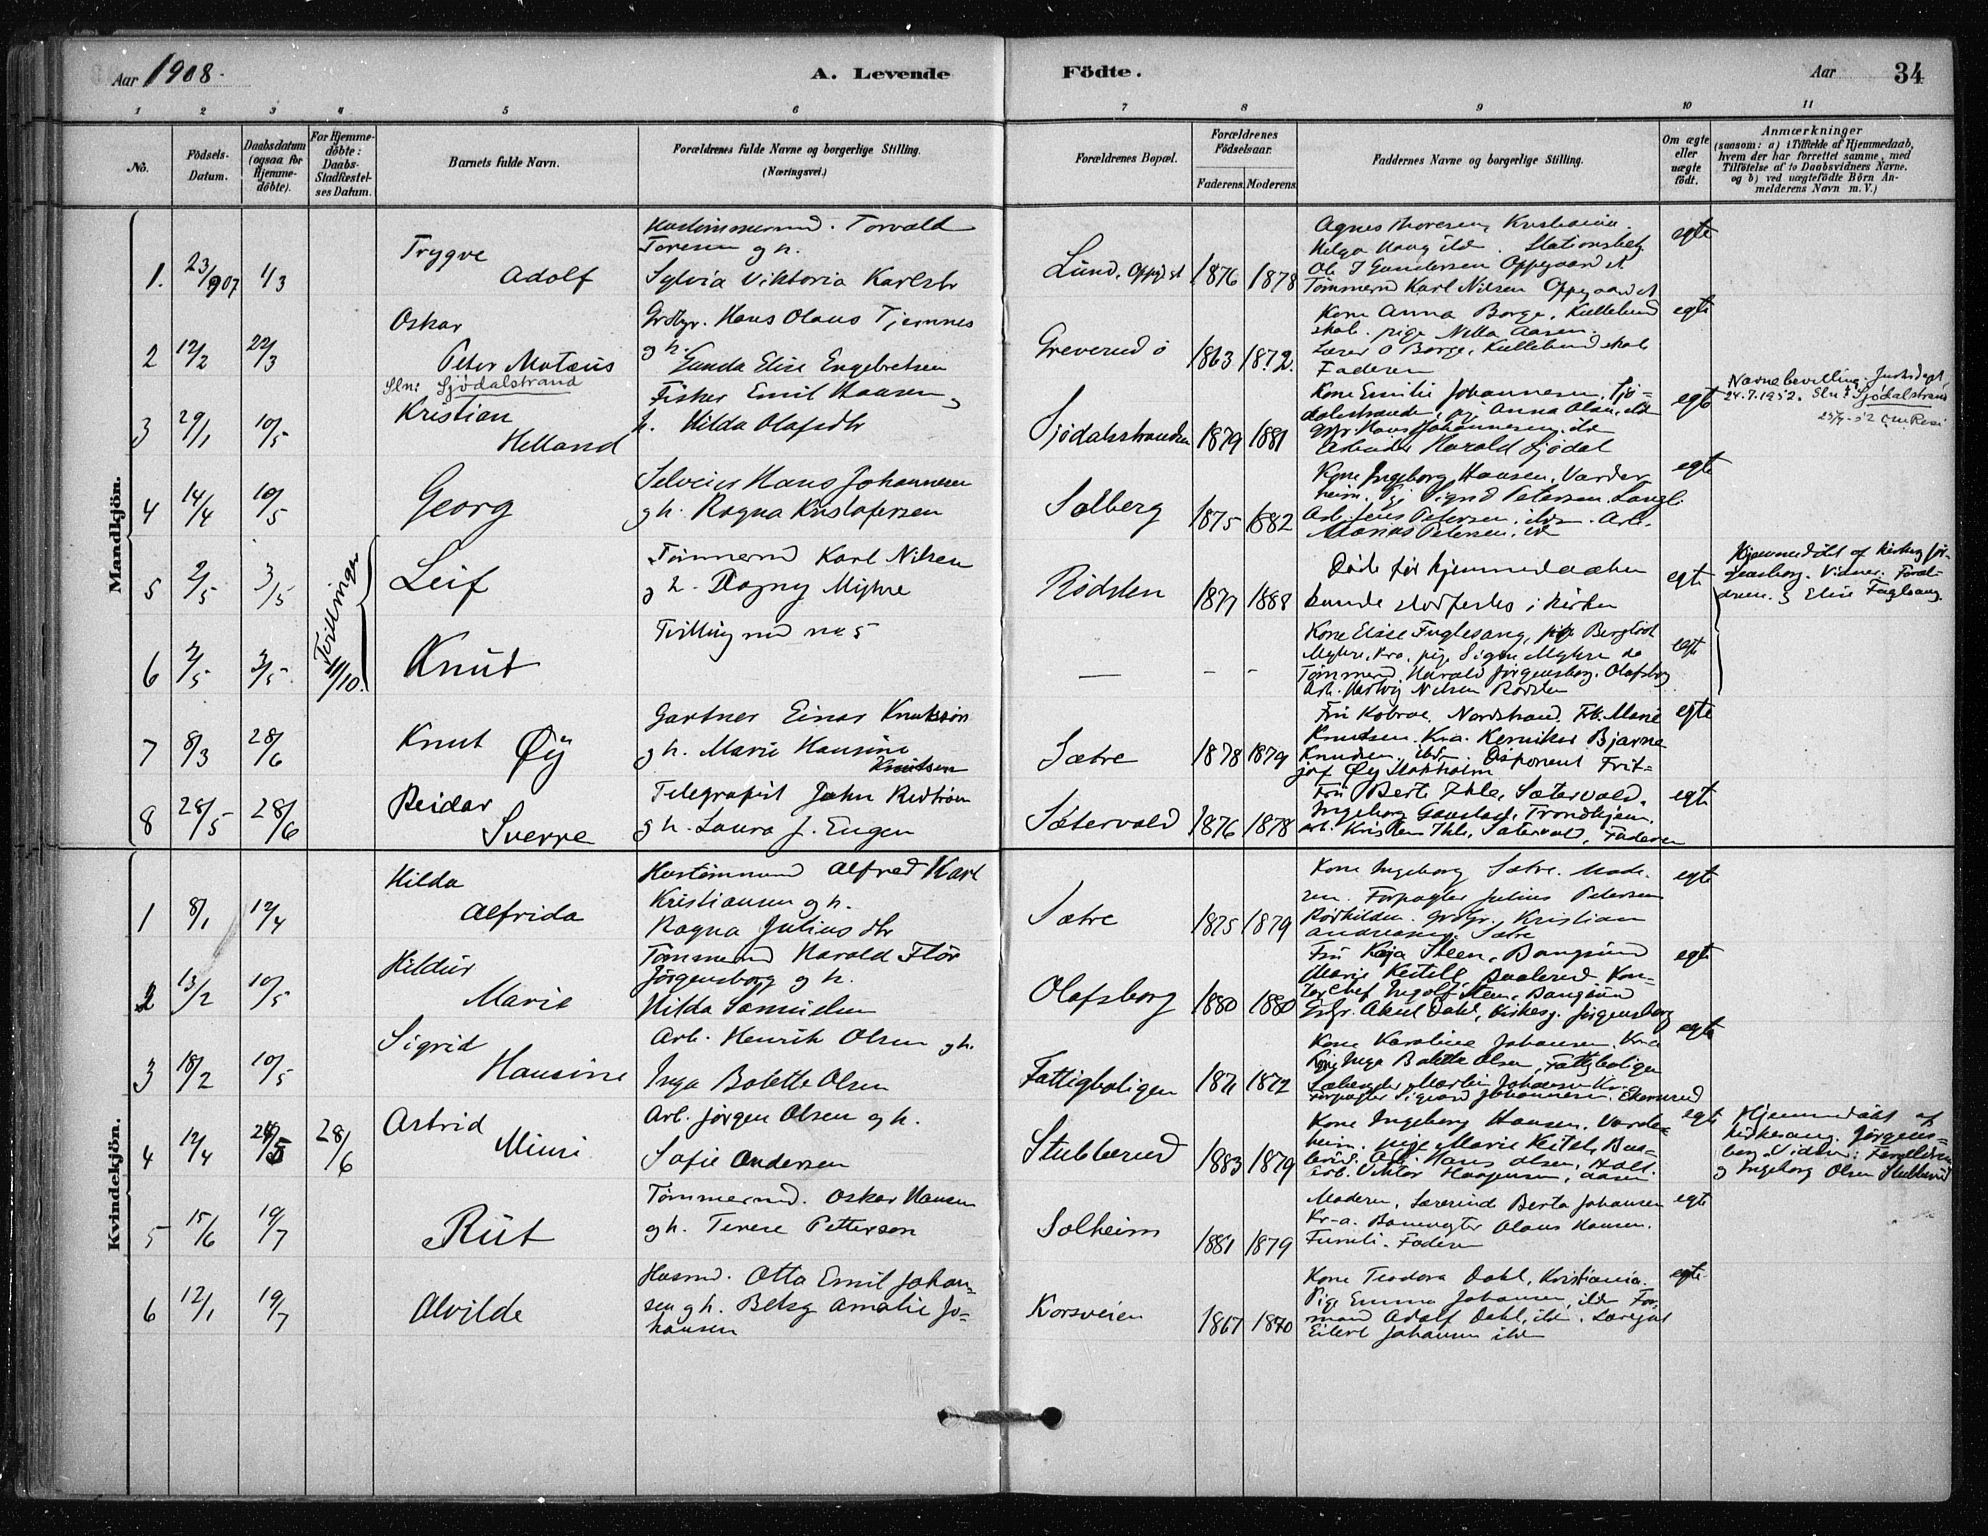 Aar 1908.
A. Levende Födte.
Aar 34
1 2 3 4 5 6 7 8 9 10 11
No.
Födsels-Datum.
Daabsdatum (ogsaa for Hjemme-döbte).
For Hjemme-döbte: Daabs-Stadfestel-ses Datum.
Barnets fulde Navn.
Forældrenes fulde Navne og borgerlige Stilling. (Næringsvei.)
Forældrenes Bopæl.
Forældrenes Födselsaar.
Faderens. Moderens.
Faddernes Navne og borgerlige Stilling.
Om ægte eller uægte födt.
Anmærkninger
(saasom: a) i Tilfælde af Hjemmedaab, hvem der har forrettet samme, med Tilföielse af to Daabsvidners Navne. og b) ved uægtefödte Börn An-melderens Navn m. V.)
Mandkjön.
1. 23/907 1/3 Trygve Adolf
Torvald
Toresen og h.
Sylvia Viktoria Karlsdr
Lund, Oppgd st 1876 1878
Agnes Thoresen, Kristiania.
Helga Haug ild. Stationsbetj
Ole J Gundersen Oppegaard st
Tømmermd Karl Nilsen Oppegaard st
egte
2 12/2 22/3 Oskar Peter Mateus
Hans Olaus Tjernnes
og h. Gunda Elise Engebretsen
Greverud ø 1863 1872.
Kone Anna Borge, Kullebund
skole. pige Nilla Aasen.
Lærer O Borge, Kullebund skole
Faderen
egte
3 29/1 10/5 Sln: Sjødalstrand
Kristian Helland
Fisker Emil Hansen og
h. Hilda Olafsdtr
Sjødalsstranden 1879 1881
Kone Emilie Johannesen, Sjø-
dalsstranden, pi. Anna Olsen, ild
Hans Johannesen ild
Arbeider Harald Sjødal
egte
Navnebevilling Justisdept.
24.7.1952. Sln: Sjødalstrand
4 14/4 10/5 Georg
Selveier Hans Johannesen
og h. Ragna Kristofersen
Solberg 1875 1882
Kone Ingeborg Hansen, Varder-
heim. Pi Sigrid Petersen
Arb. Jens Petersen, ild. Arb.
Petersen, ild
egte
5 2/5 3/5 Tvillinger Leif
Tømmermd Karl Nilsen
og h. Dagny Myhre
Rødsten 1877 1888
Døde før hjemmedaaben
kunde stadfestes i kirken
egte
Hjemmedøbt af kirkesg Jør-
gensborg. Vidner: Foræl-
drene og Elise Fuglesang.
6 2/5 3/5 11/10. Knut
Tvilling med no 5
— – –
Kone Elise Fuglesang, pige Bergliot
Myhre, Kra, pige Signe Myhre do
Tømmermd. Harald Jørgensborg. Olafsborg
Arb. Hartvig Nilsen Rødsten
egte
7 8/3 28/6 Knut Øy
Gartner Einar Knutsøn
og h. Marie Hansine
Knutsen
Sætre 1878 1879
Fru Kobroe, Nordstrand. Frk. Marie
Knudsen. Kra. Kemiker Bjarne
Knudsen, ibdm. Disponent Frit-
jof Øy Stokholm
egte
8 28/5 28/6 Reidar Sverre
Telegrafist John Redtrøen
og h. Laura J. Engen
Sætervold 1876 1878
Fru Berte Ihle, Sætervold.
Ingeborg Gaustad, Trondhjem.
arb. Kristen Ihle, Sætervold, Faderen
egte
Kvindekjön.
1 8/1 12/4 Hilda Alfrida
Alfred Karl
Kristiansen og h.
Ragna Juliusdtr
Sætre 1875 1879
Kone Ingeborg Sætre. Mode-
ren. Forpagter Julius Petersen
Rødkilden. Kristian
Andreasen. Sætre
egte
2 13/2 10/5 Hildur Marie
Tømmermd Harald Flor
Jørgensborg og h.
Hilda Samuelsen
Olafsborg 1880 1880
Fru Kaja Steen, Bangsund
Marie Keitel, Kon-
torchef Ingolf Steen, Bangsund
Aksel Dahl, kirkesg. Jørgensborg
egte
3 18/2 10/5 Sigrid Hansine
Arb. Henrik Olsen og h.
Inga Bolette Olsen
Fattigboligen 1871 1872
Kone Karoline Johansen. Kra
Inga Bolette Olsen, Fattigboligen
Martin Johansen
Forpagter Sigvard Johannesen, Ekornrud
egte
4 12/4 28/6 Astrid Mimi
Arb. Jørgen Olsen og h.
Sofie Andersen
Stubberud 1883 1879
Kone Ingeborg Hansen. Varde-
heim. pige Marie Keitel,
Arb. Hans Olsen, Holt.
arb. Viktor Haagensen, Aasen
egte
Hjemmedøbt af
kirkesang. Jørgens-
borg. Vidner: Forældrene
og Ingeborg Olsen Stubberud
5 15/6 19/7 Rut
Tømmermd. Oskar Hansen
og h. Terese Petterson
Solheim 1881 1879
Moderen, Lærerind Berta Johansen
Kr-a. Banevogter Olaus Hansen.
Faderen
egte
6 12/1 19/7 Alvilde
Husmd. Otto Emil Johan-
sen og h. Betsy Amalie Jo-
hansen
Korsveien 1867 1870
Kone Teodora Dahl, Kristiania.
Pige Emma Johansen, ild. For-
mand Adolf Dahl, ild.
Eilert Johansen ild
egte